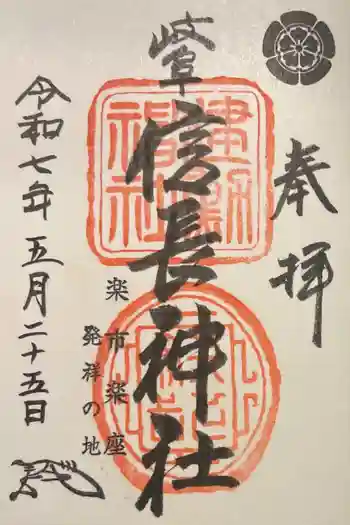 奉拝
岐阜
信長神社
建勲
神社
楽市楽座
発祥の地
令和七年五月二十五日